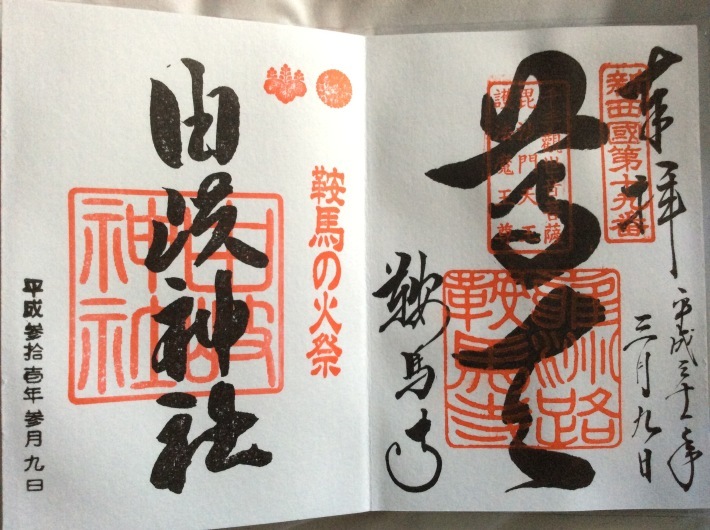 奉拝
平成三十一年
三月九日
新西國第十九番
千手観世音菩薩
毘沙門天王
護法魔王尊
尊天
鞍馬寺
鞍馬の火祭
由岐神社
由岐神社
平成参拾壱年参月九日